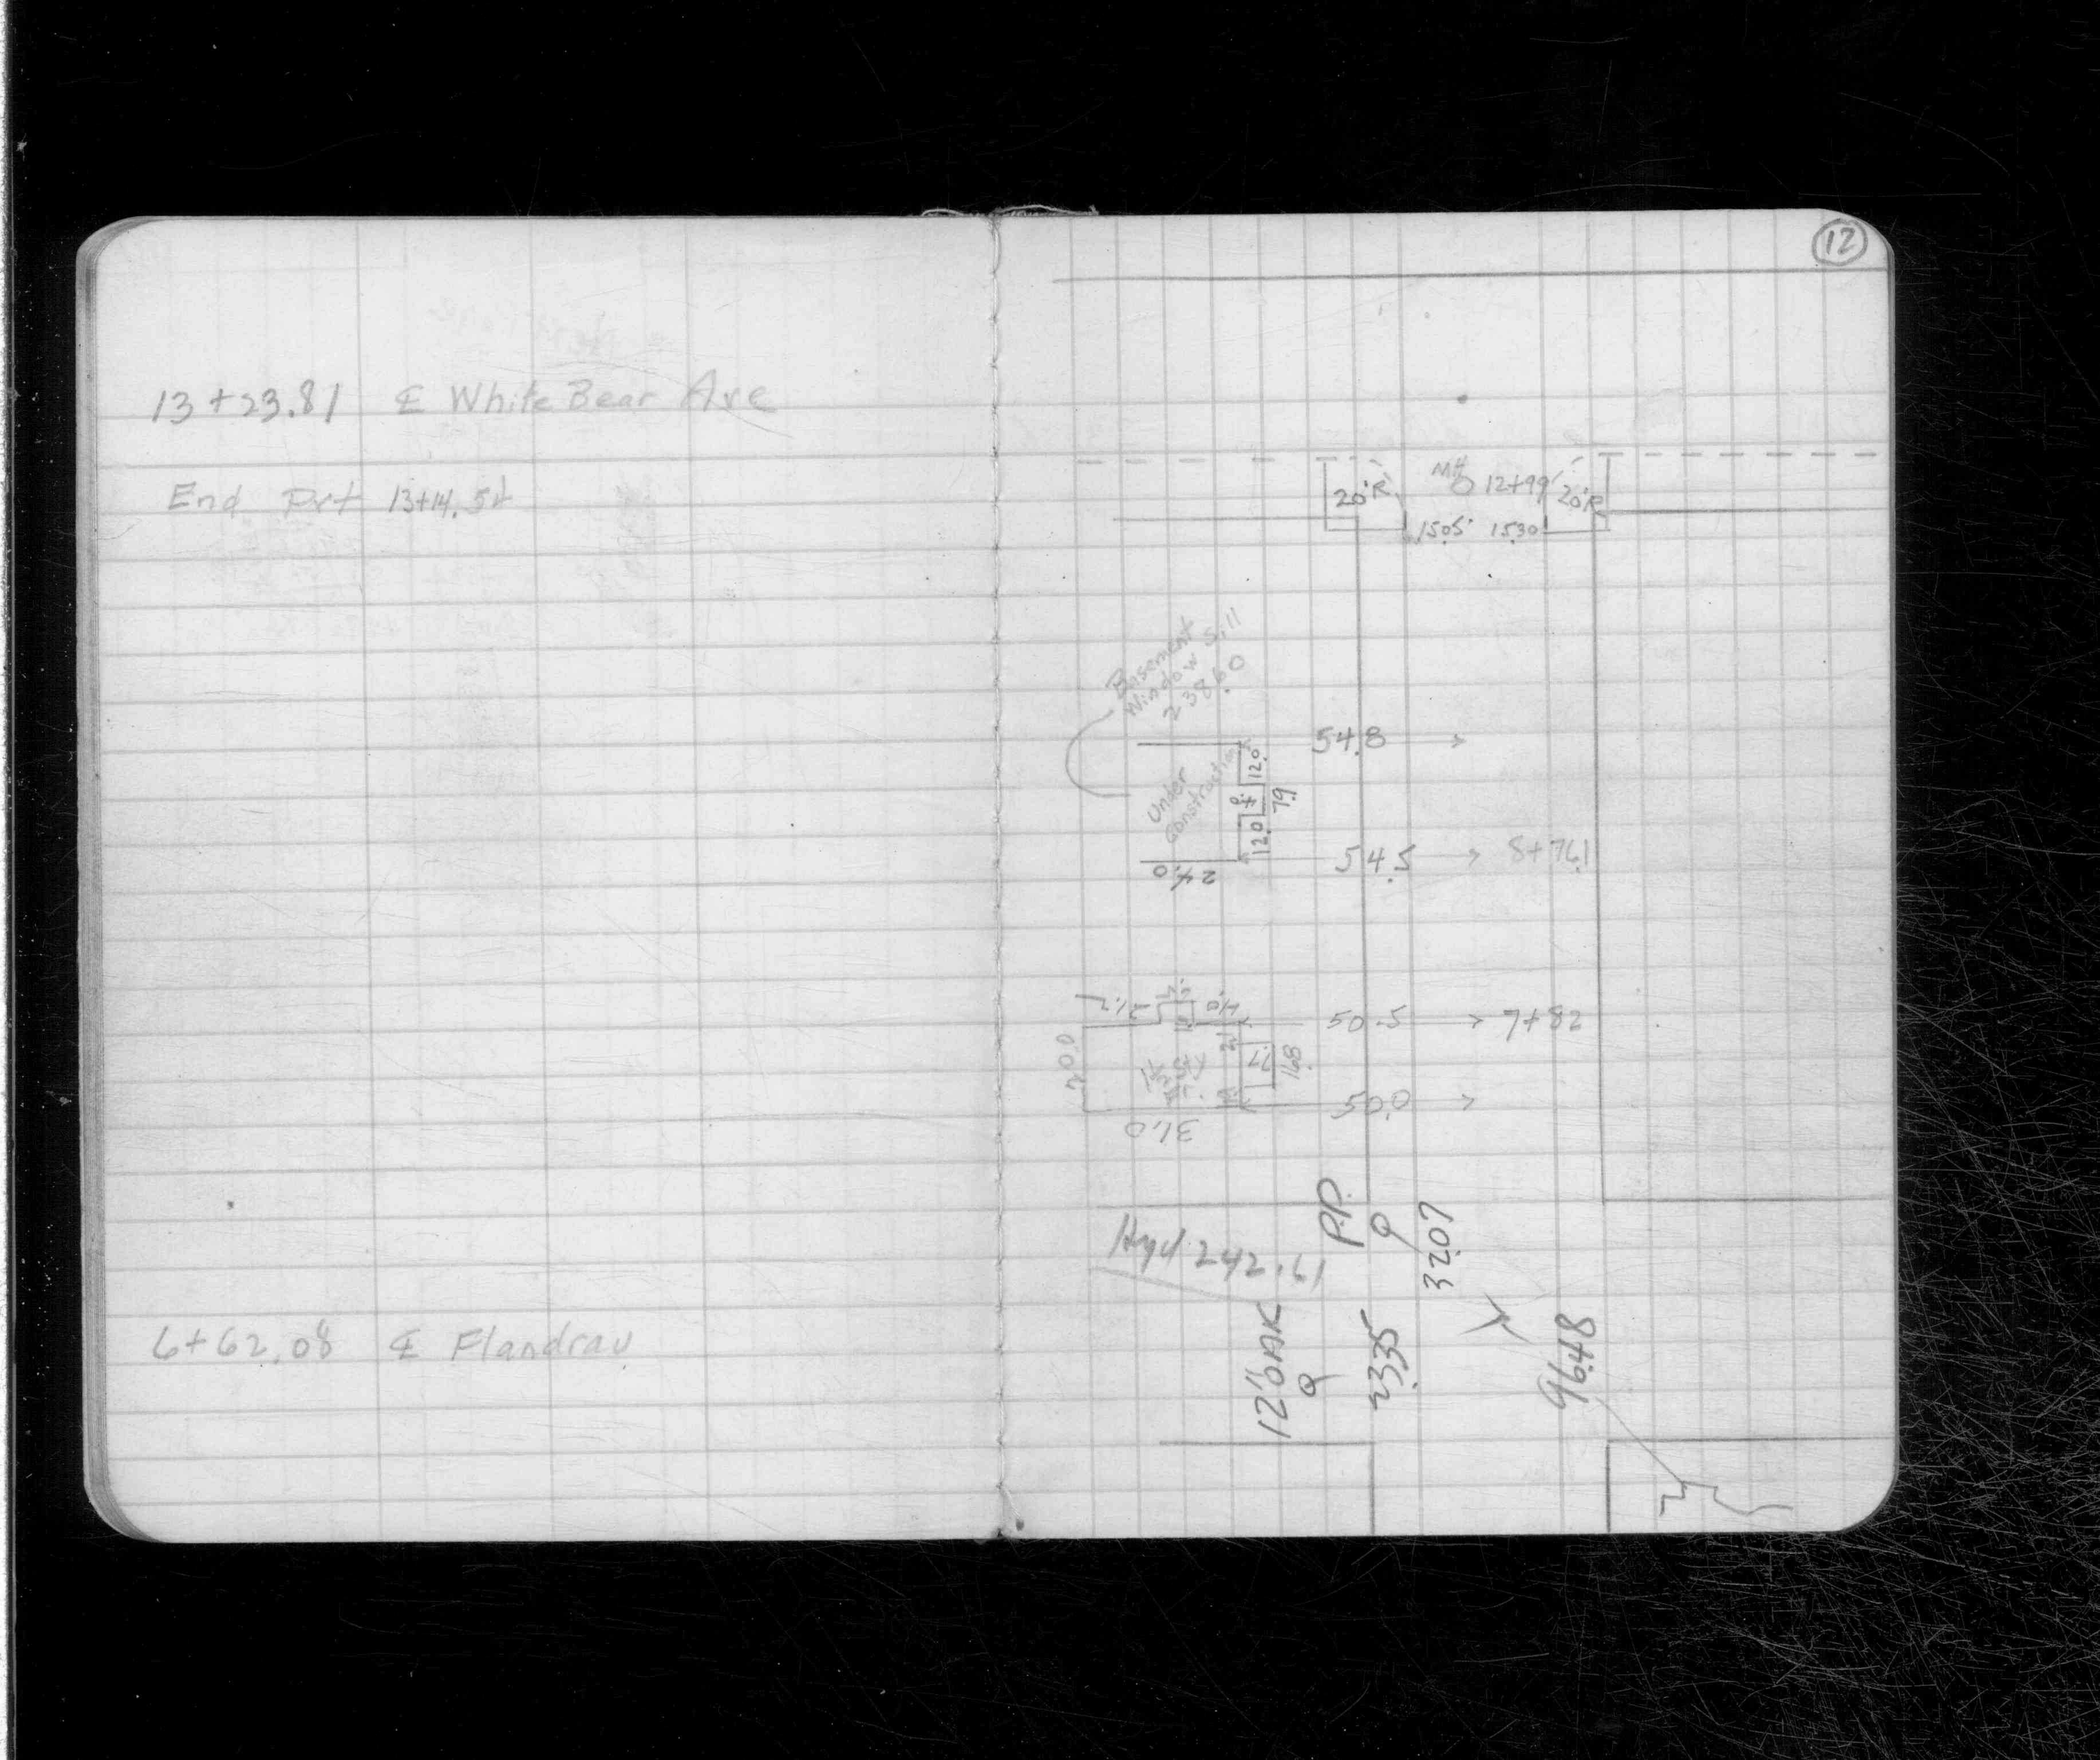 13+23.81 ℄ White Bear Ave
End Pvt 13+14.54
6+62.08 ℄ Flandrau
12
20'R MH 12+99 20'R
15.05 15.30
Basement
Window Sill
238.60
54.8
Under
Construction
12.0 4.0 12.0
7.9
54.5 8+76.1
24.0
4.0
50.5 7+82
20.0
7.7
16.8
50.0
31.0
Hyd. 242.61
P.P.
32.07
12" OAK
23.35
96.48